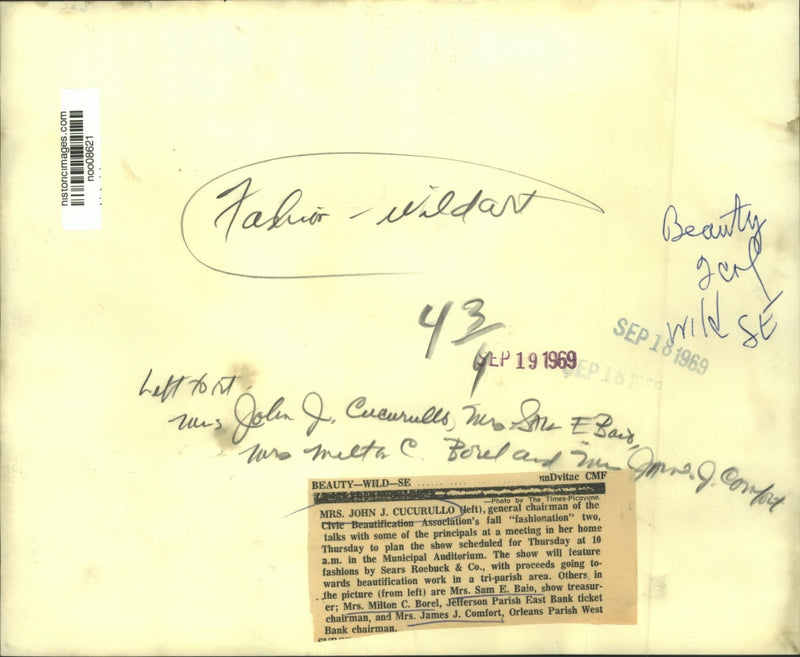 historicimages.com
noo08621
Fashion - wildart
Beauty
2 col
Wild SE
43
SEP 19 1969
SEP 18 1969
SEP 18 1969
Left to rt.
Mrs John J. Cucurullo, Mrs Sam E Baio,
Mrs Milton C. Borel and Mrs James J. Comfort
BEAUTY—WILD—SE ........... nnDvitac CMF
—Photo by The Times-Picayune.
MRS. JOHN J. CUCURULLO (left), general chairman of the
Civic Beautification Association's fall "fashionation" two,
talks with some of the principals at a meeting in her home
Thursday to plan the show scheduled for Thursday at 10
a.m. in the Municipal Auditorium. The show will feature
fashions by Sears Roebuck & Co., with proceeds going to-
wards beautification work in a tri-parish area. Others in
the picture (from left) are Mrs. Sam E. Baio, show treasur-
er; Mrs. Milton C. Borel, Jefferson Parish East Bank ticket
chairman, and Mrs. James J. Comfort, Orleans Parish West
Bank chairman.